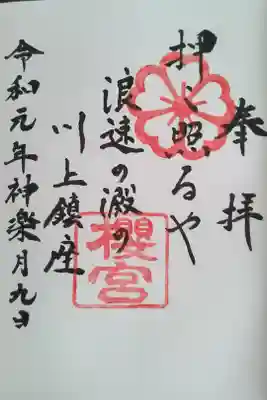 奉拝
押し照るや
浪速の澱の
川上鎮座
櫻宮
令和元年神楽月九日